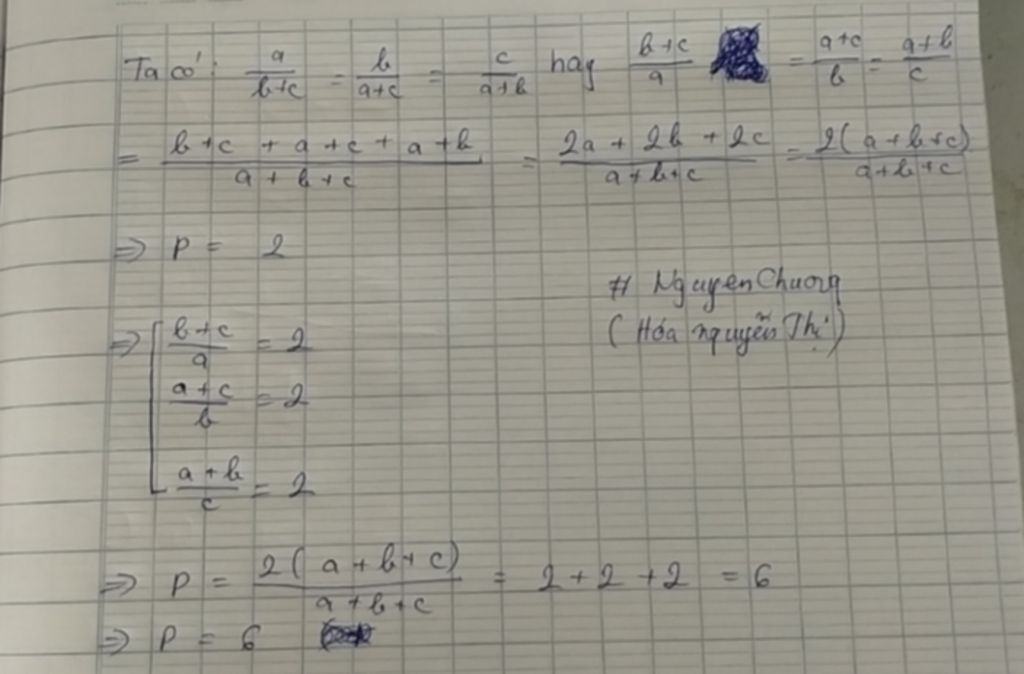 Ta có: a/(b+c) = b/(a+c) = c/(a+b) hay (b+c)/a = (a+c)/b = (a+b)/c
= (b+c + a+c + a+b)/(a+b+c) = (2a + 2b + 2c)/(a+b+c) = 2(a+b+c)/(a+b+c)
=> P = 2
# NguyenChuong
(Hóa nguyễn Thị)
=> [ (b+c)/a = 2
(a+c)/b = 2
(a+b)/c = 2
=> P = 2(a+b+c)/(a+b+c) = 2+2+2 = 6
=> P = 6